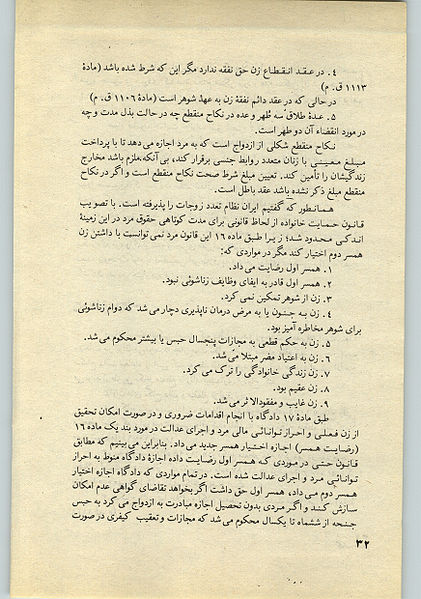 ۴. در عقد انقطاع زن حق نفقه ندارد مگر این که شرط شده باشد (مادهٔ
۱۱۱۳ ق. م)
درحالی که در عقد دائم نفقهٔ زن به عهدهٔ شوهر است (مادهٔ ۱۱۰۶ ق. م)
۵. عدهٔ طلاق سه طُهر و عده در نکاح منقطع چه در حالت بذل مدت و چه
در مورد انقضاء آن دو طهر است.
نکاح منقطع شکلی از ازدواج است که به مرد اجازه می‌دهد تا با پرداخت
مبلغ معینی با زنان متعدد روابط جنسی برقرار کند، بی آنکه ملزم باشد مخارج
زندگیشان را تأمین کند. تعیین مبلغ شرط صحت نکاح منقطع است و اگر در نکاح
منقطع مبلغ ذکر نشده باشد عقد باطل است.
همانطور که گفتیم ایران نظام تعدد زوجات را پذیرفته است. با تصویب
قانون حمایت خانواده از لحاظ قانونی برای مدت کوتاهی حقوق مرد در این زمینهٔ
اندکی محدود شد؛ زیرا طبق ماده ۱۶ این قانون مرد نمی توانست با داشتن زن
همسر دوم اختیار کند مگر در مواردی که:
۱. همسر اول رضایت می‌داد.
۲. همسر اول قادر به ایفای وظایف زناشوئی نبود.
۳. زن از شوهر تمکین نمی کرد.
۴. زن به جنون یا به مرض درمان ناپذیری دچار می شد که دوام زناشوئی
برای شوهر مخاطره آمیز بود.
۵. زن به حکم قطعی به مجازات پنجسال حبس یا بیشتر محکوم می شد.
۶. زن به اعتیاد مضر مبتلا می شد.
۷. زن زندگی خانوادگی را ترک می کرد.
۸. زن عقیم بود.
۹. زن غایب و مفقودالاثر می شد.
طبق مادهٔ ۱۷ دادگاه با انجام اقدامات ضروری و در صورت امکان تحقیق
از زن فعلی و احراز توانائی مالی مرد و اجرای عدالت در مورد بند یک ماده ۱۶
(رضایت همسر) اجازه اختیار همسر جدید می‌داد. بنابراین می‌بینیم که مطابق
قانون حتی در موردی که همسر اول رضایت داده اجازهٔ دادگاه منوط به احراز
توانائی مرد و اجرای عدالت شده است. در تمام مواردی که دادگاه اجازه اختیار
همسر دوم می داد، همسر اول حق داشت اگر بخواهد تقاضای گواهی عدم امکان
سازش کند و اگر مردی بدون تحصیل اجازه مبادرت به ازدواج می کرد به حبس
جنحه از ششماه تا یکسال محکوم می شد که مجازات و تعقیب کیفری در صورت
۳۲